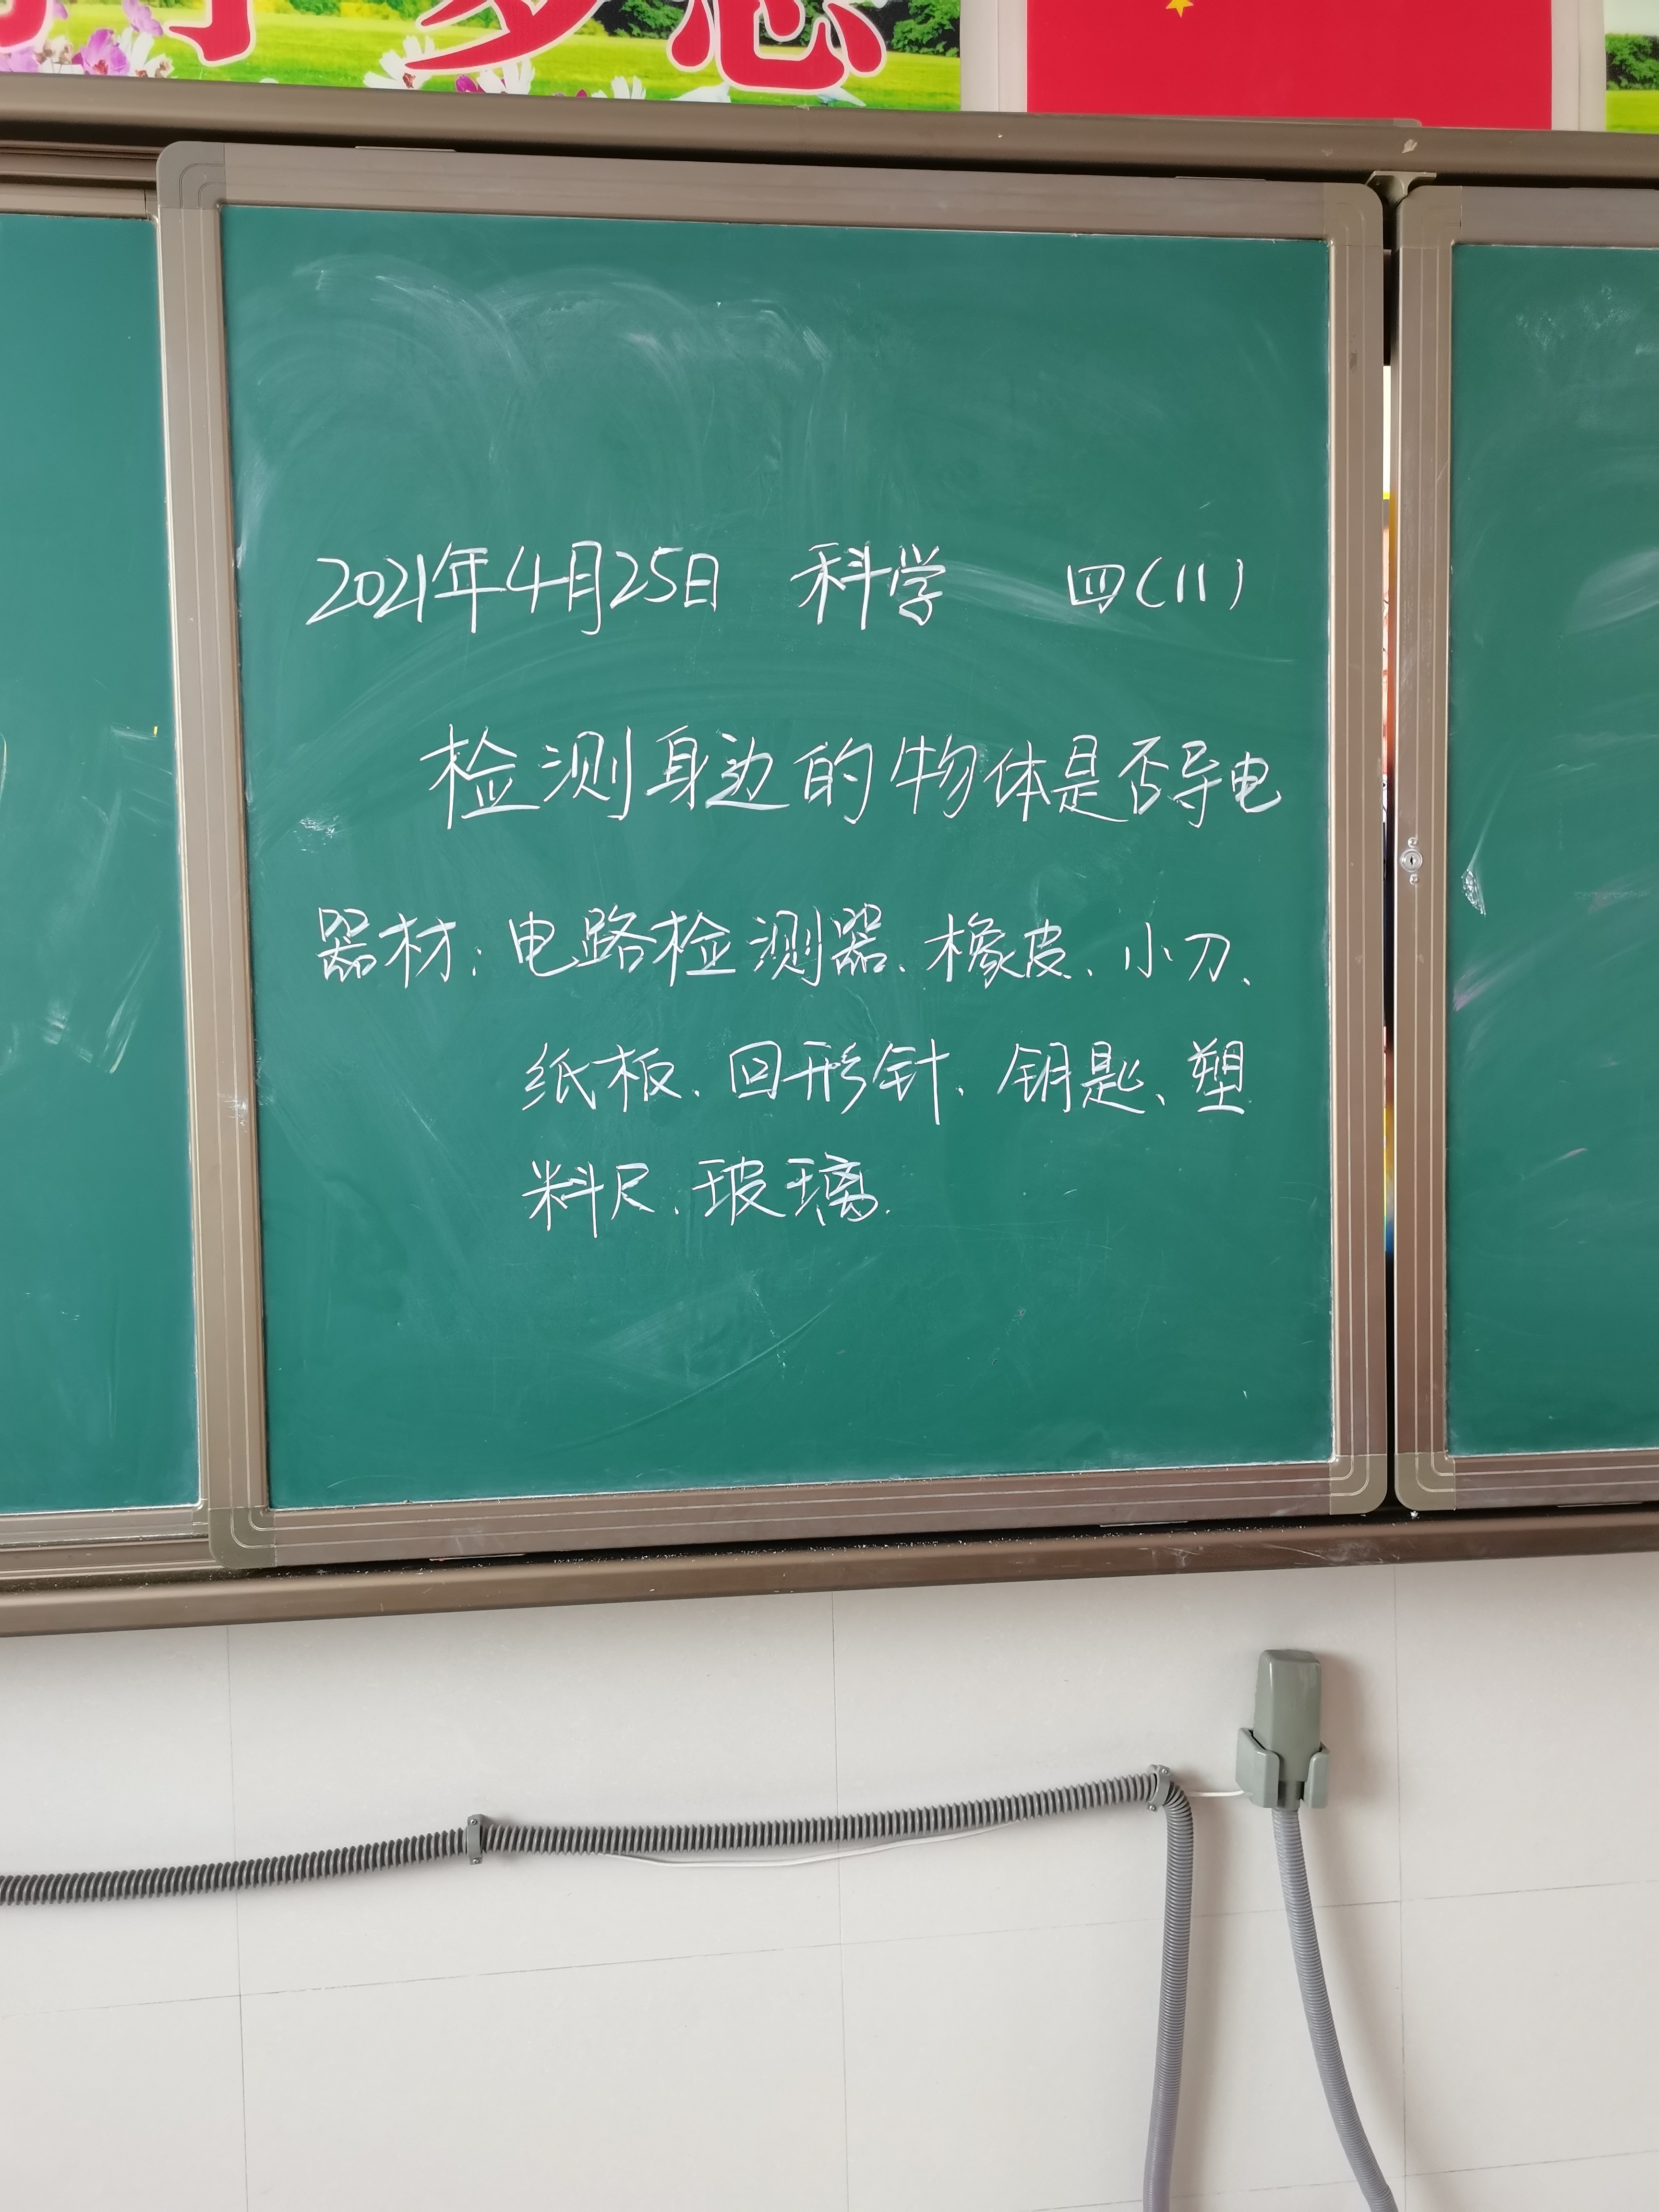 2021年4月25日 科学 四(11)
检测身边的物体是否导电
器材：电路检测器、橡皮、小刀、
纸板、回形针、钥匙、塑
料尺、玻璃.